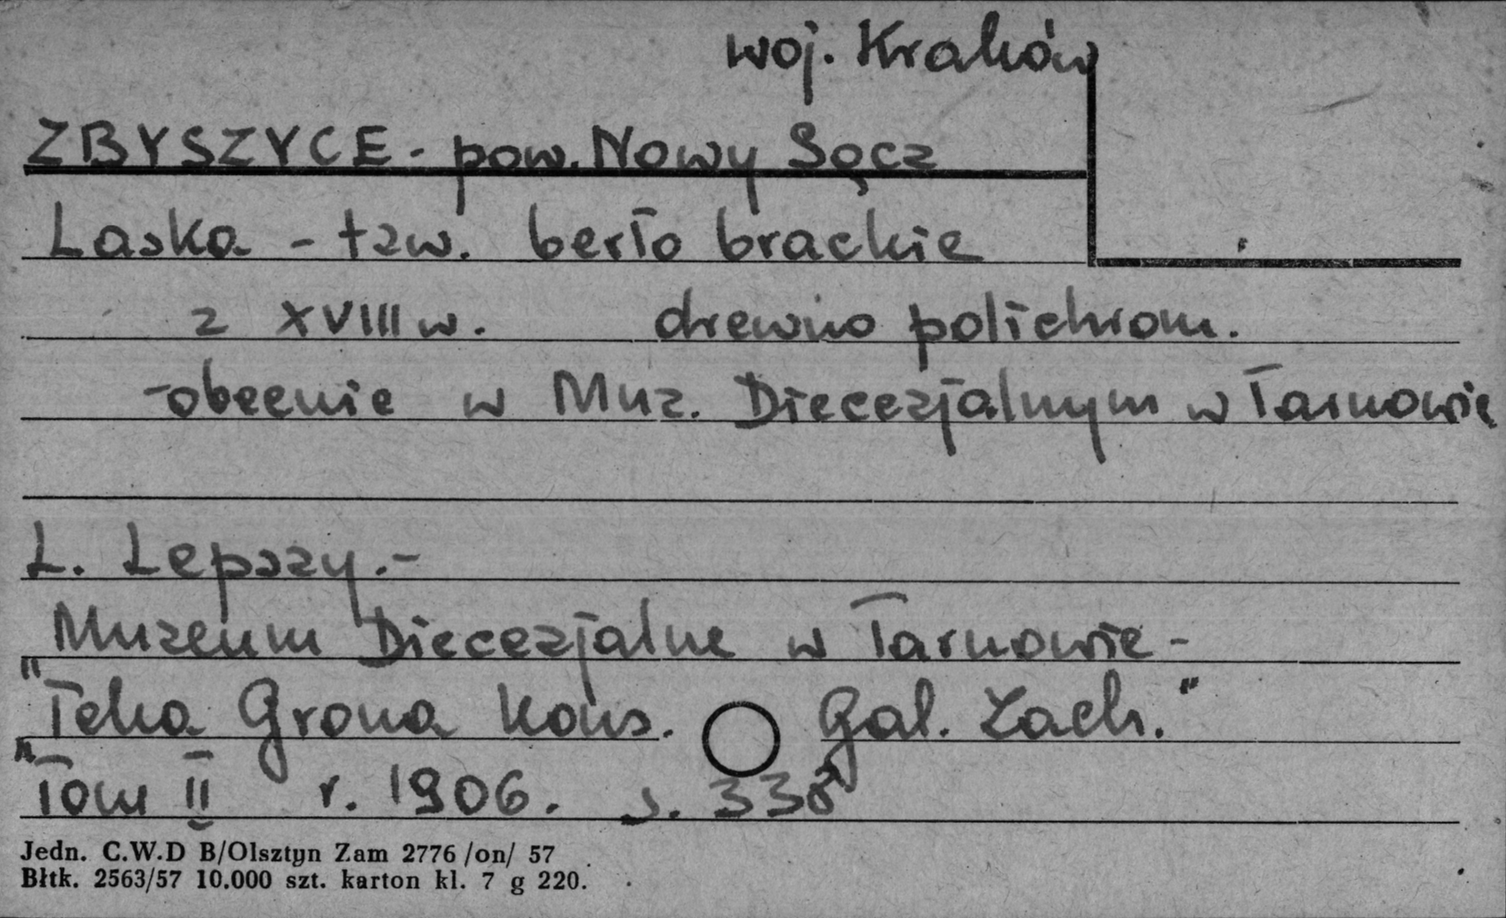 woj. Kraków
ZBYSZYCE - pow. Nowy Sącz
Laska - tzw. berło brackie
z XVIII w. drewno polichrom.
- obecnie w Muz. Diecezjalnym w Tarnowie
L. Lepszy.-
Muzeum Diecezjalne w Tarnowie -
"Teka Grona Kons. Gal. Zach."
"Tom II r. 1906. s. 338
Jedn. C.W.D B/Olsztyn Zam 2776 /on/ 57
Błtk. 2563/57 10.000 szt. karton kl. 7 g 220.